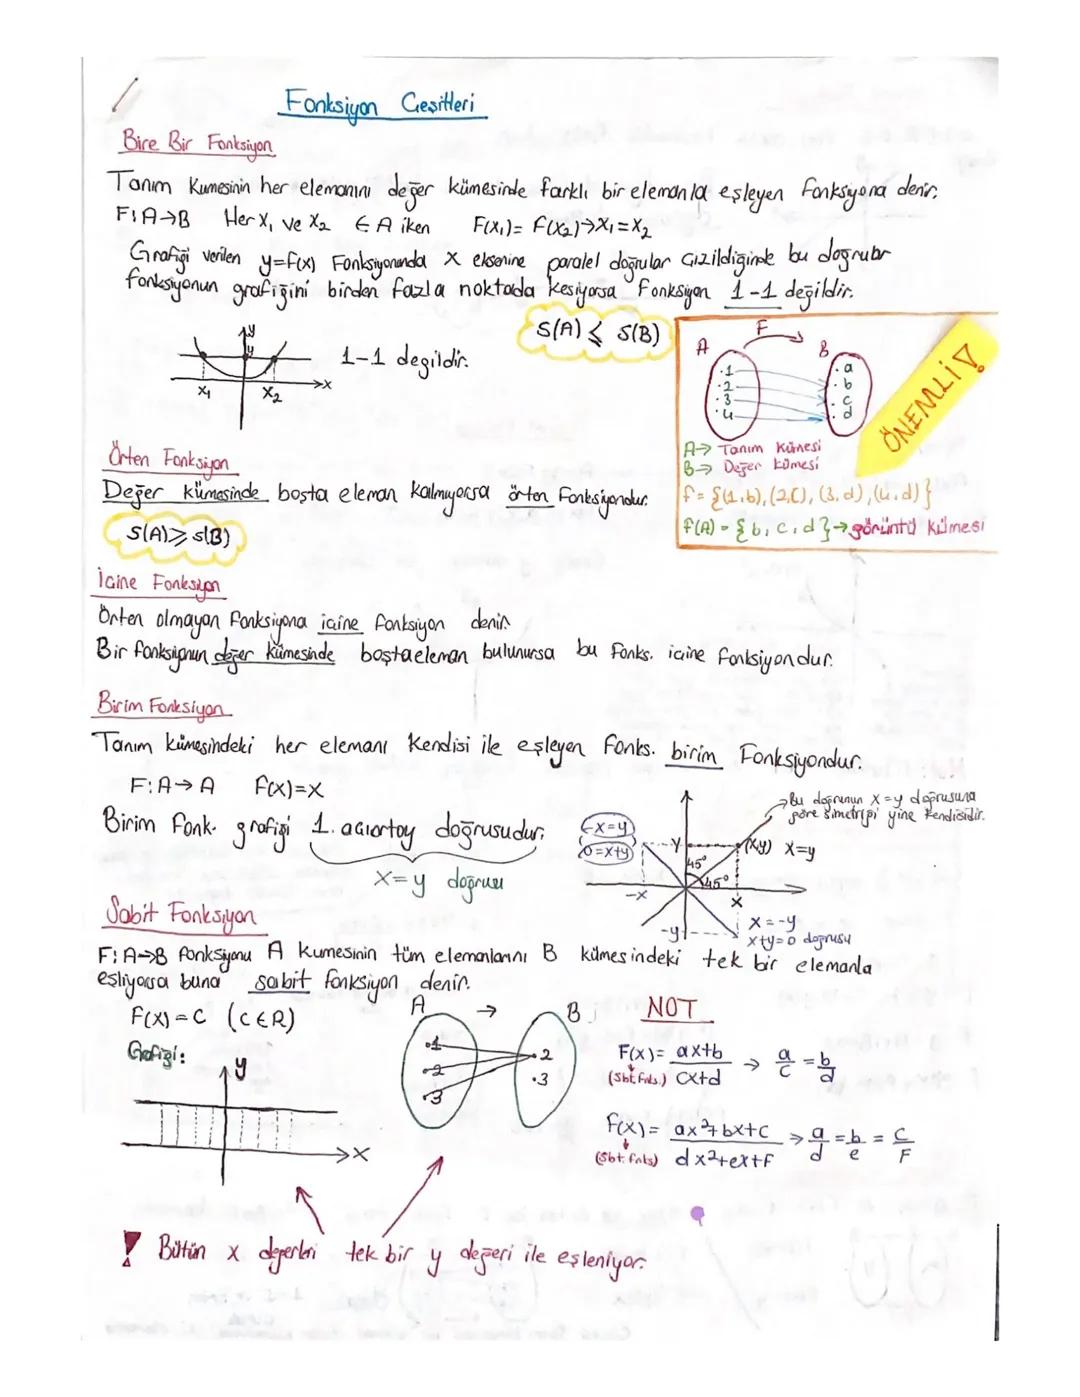 Fonksiyon Çeşitleri
Bire Bir Fonksiyon
Tanım Kümesinin her elemanını değer kümesinde farklı bir elemanla eşleyen fonksiyona denir.
F:A→B Her x₁ ve x₂ ∈ A iken F(x₁)= F(x₂)→x₁=x₂
Grafiği verilen y=f(x) Fonksiyonunda x eksenine paralel doğrular çizildiğinde bu doğrular
fonksiyonun grafiğini birden fazla noktada kesiyorsa fonksiyon 1-1 değildir.
S(A) ⩽ S(B)
y
y
x₁ x₂ x
1-1 değildir.
F
A B
.1 .a
.2 .b
.3 .c
.4 .d
ÖNEMLİ!
A→ Tanım Kümesi
B→ Değer kümesi
f= {(1,b),(2,c),(3,d),(4,d)}
f(A) = {b,c,d}→görüntü kümesi
Örten Fonksiyon
Değer kümesinde boşta eleman kalmıyorsa örten fonksiyondur.
S(A)⩾ s(B)
İçine Fonksiyon
Örten olmayan fonksiyona içine fonksiyon denir.
Bir fonksiyonun değer kümesinde boşta eleman bulunursa bu fonks. içine fonksiyondur.
Birim Fonksiyon
Tanım kümesindeki her elemanı kendisi ile eşleyen fonks. birim Fonksiyondur.
F:A→A f(x)=x
Birim fonk. grafiği 1. açıortay doğrusudur;
x=y doğrusu
→Bu doğrunun x=y doğrusuna
göre simetriği yine kendisidir.
-x=y
0=x+y
y (x,y) x=y
45°
45°
-x x
-y
x=-y
x+y=0 doğrusu
Sabit Fonksiyon
F:A→B fonksiyonu A kümesinin tüm elemanlarını B kümesindeki tek bir elemanla
eşliyorsa buna sabit fonksiyon denir.
F(x)=c (c∈R)
Grafiği:
y
x
A → B
.1
.2
.3
.2
.3
NOT
F(x)= ax+b / cx+d → a/c = b/d
(Sbt.fnks.)
f(x)= ax²+bx+c / dx²+ex+f → a/d = b/e = c/F
(Sbt. fnks)
! Bütün x değerleri tek bir y değeri ile eşleniyor.